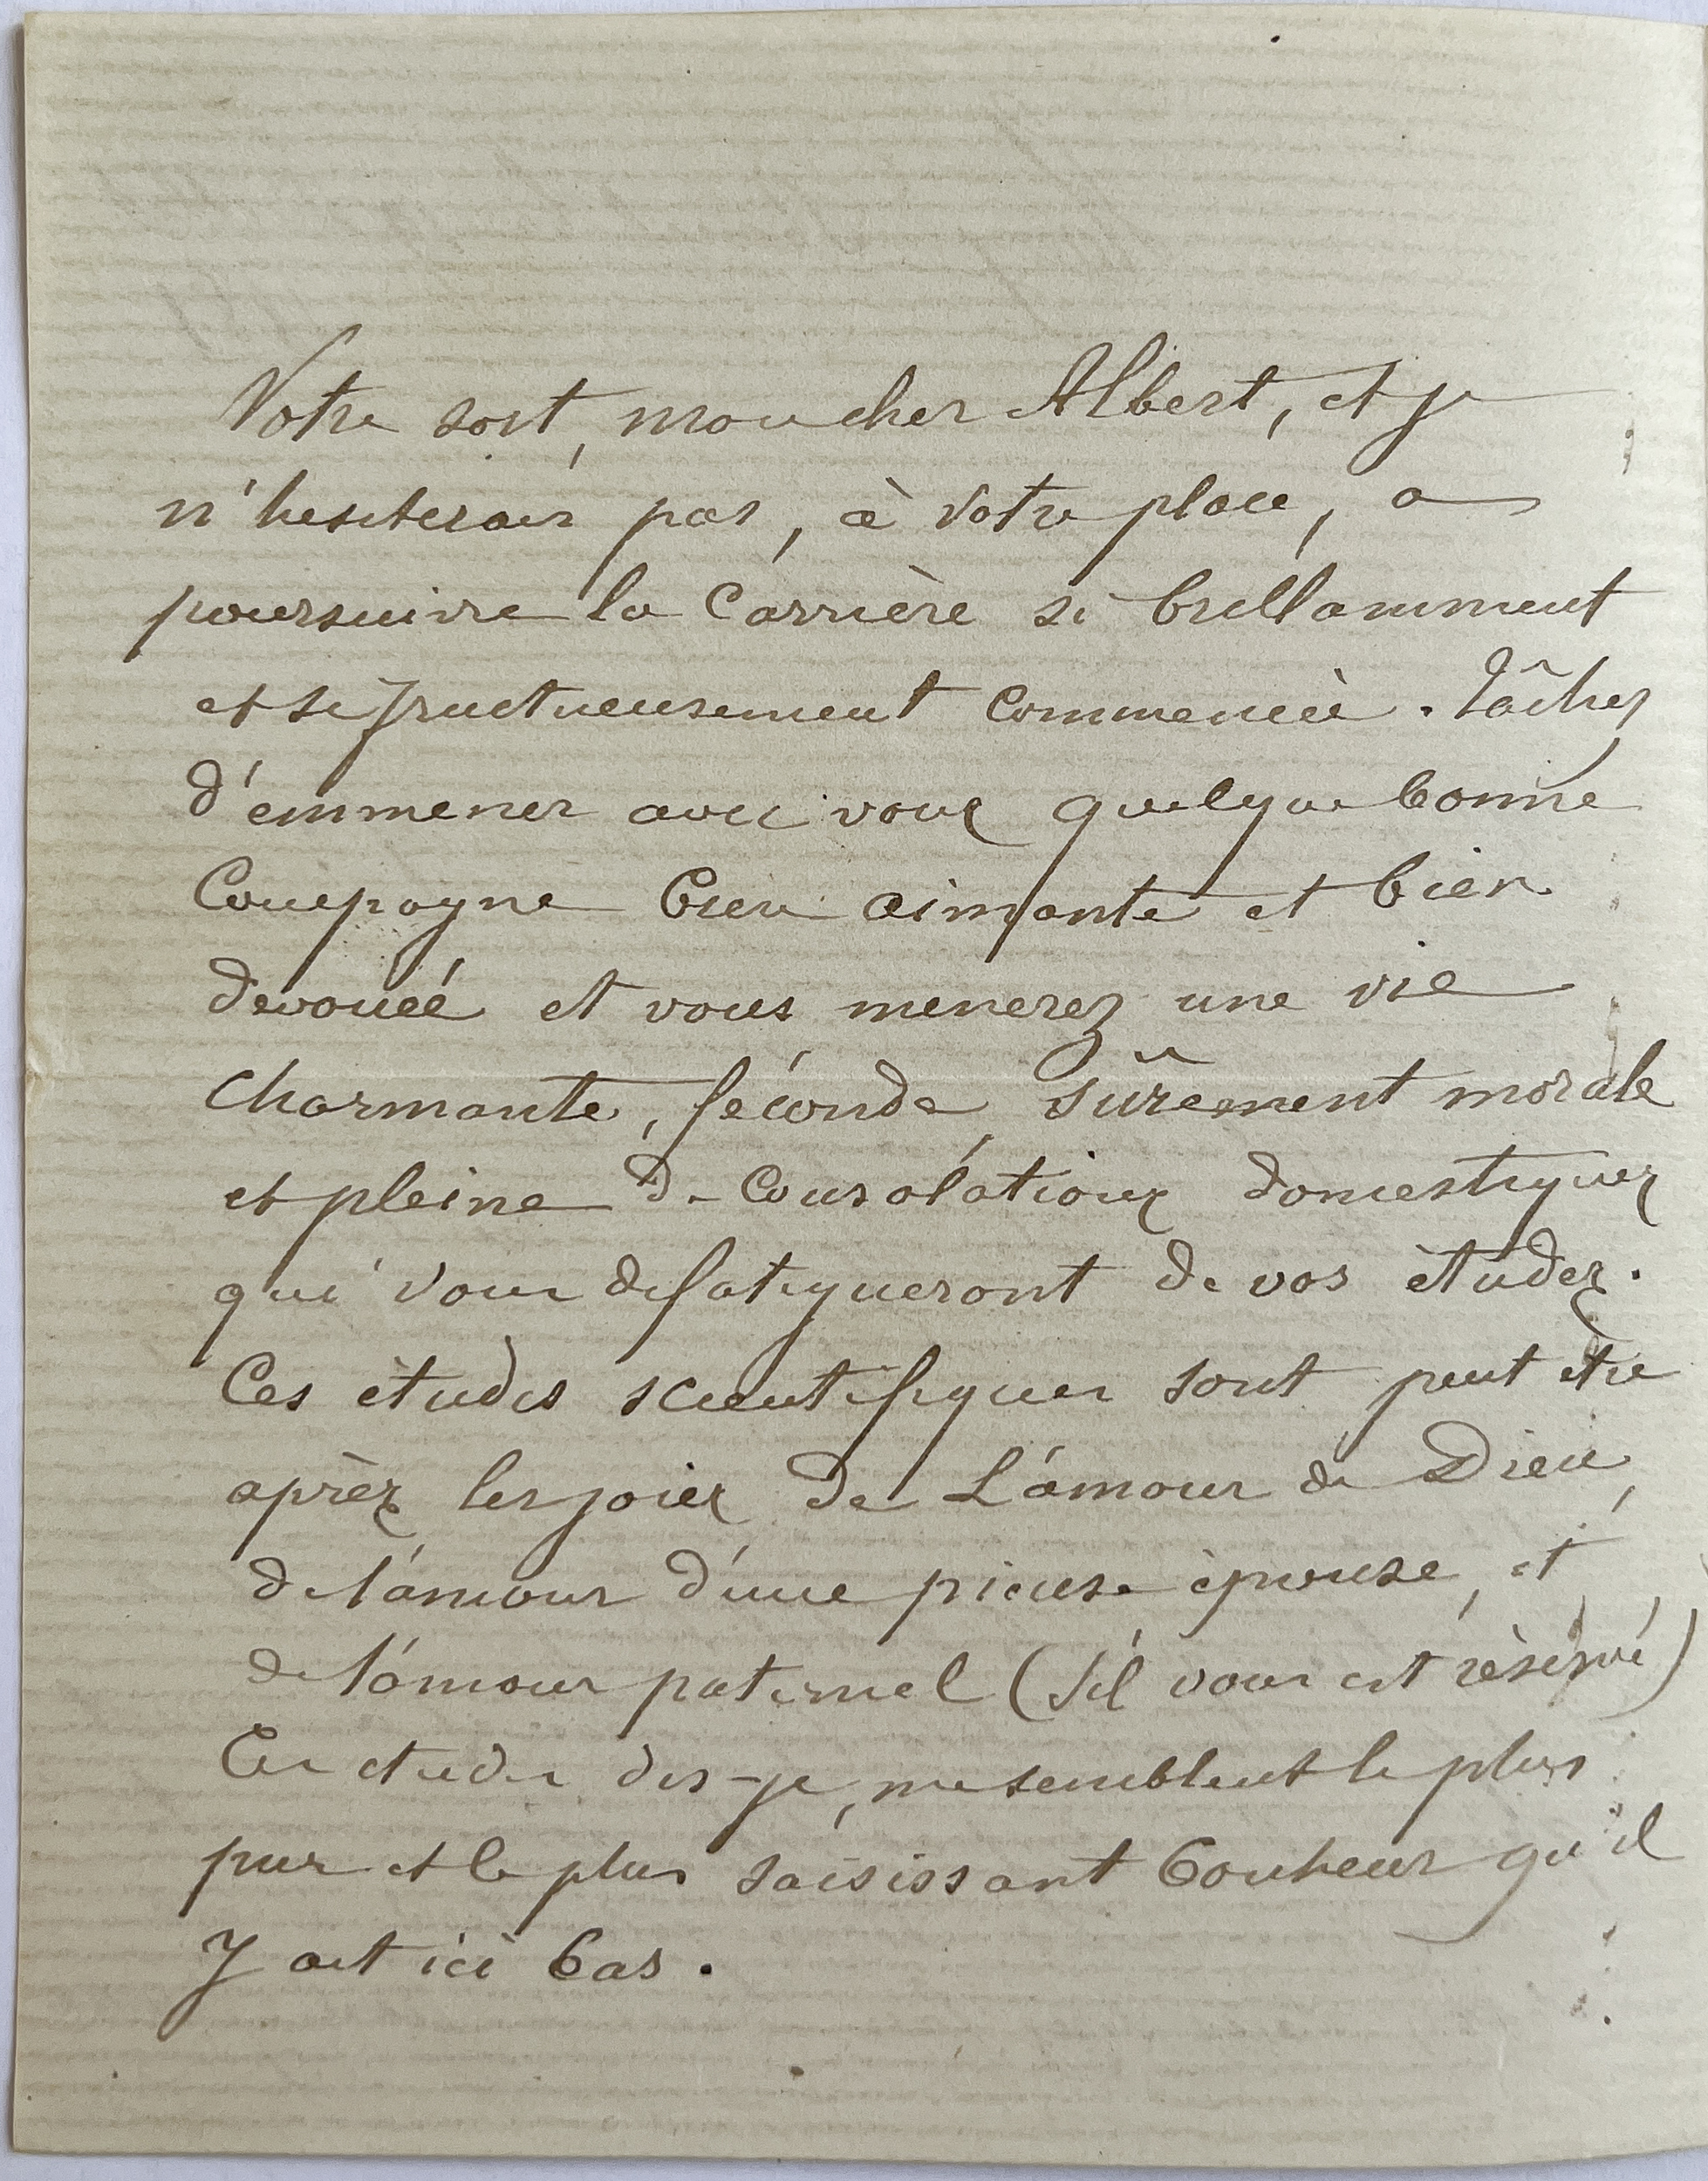 Votre sort, mon cher Albert, et je
n'hesiterais pas, à votre place, a
poursuivre la Carrière si brillamment
et si fructueusement commencée. Tâchez
d'emmener avec vous quelque bonne
Compagne bien aimante et bien
devouée et vous menerez une vie
charmante, féconde, sûrement morale
et pleine de Consolations domestiques
qui vous defatigueront de vos études.
Ces études scientifiques sont peut etre
après les joies de L'amour de Dieu,
de l'amour d'une pieuse épouse, et
de l'amour paternel (s'il vous est réservé)
Ces etudes dis-je, me semblent le plus
pur et le plus saisissant bonheur qu'il
Y ait ici bas.